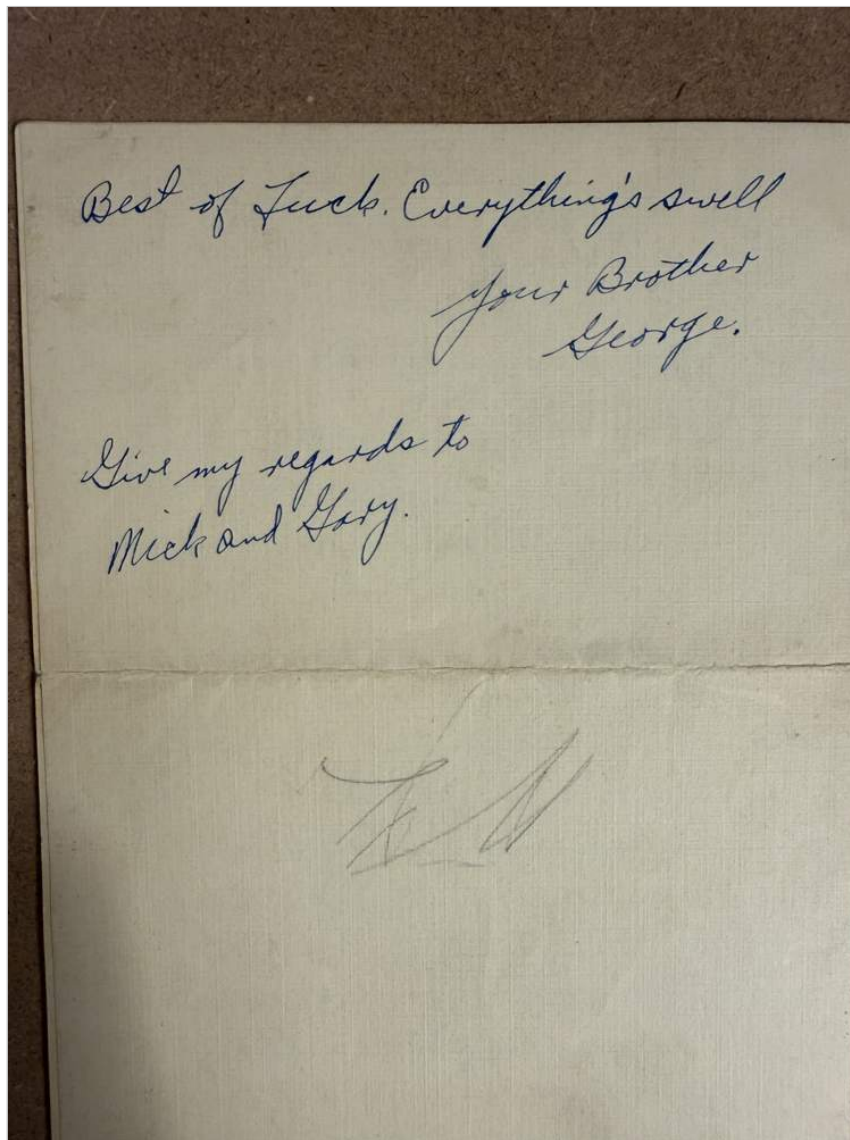 Best of Luck. Everything's swell
Your Brother
George.
Give my regards to
Mick and Gary.